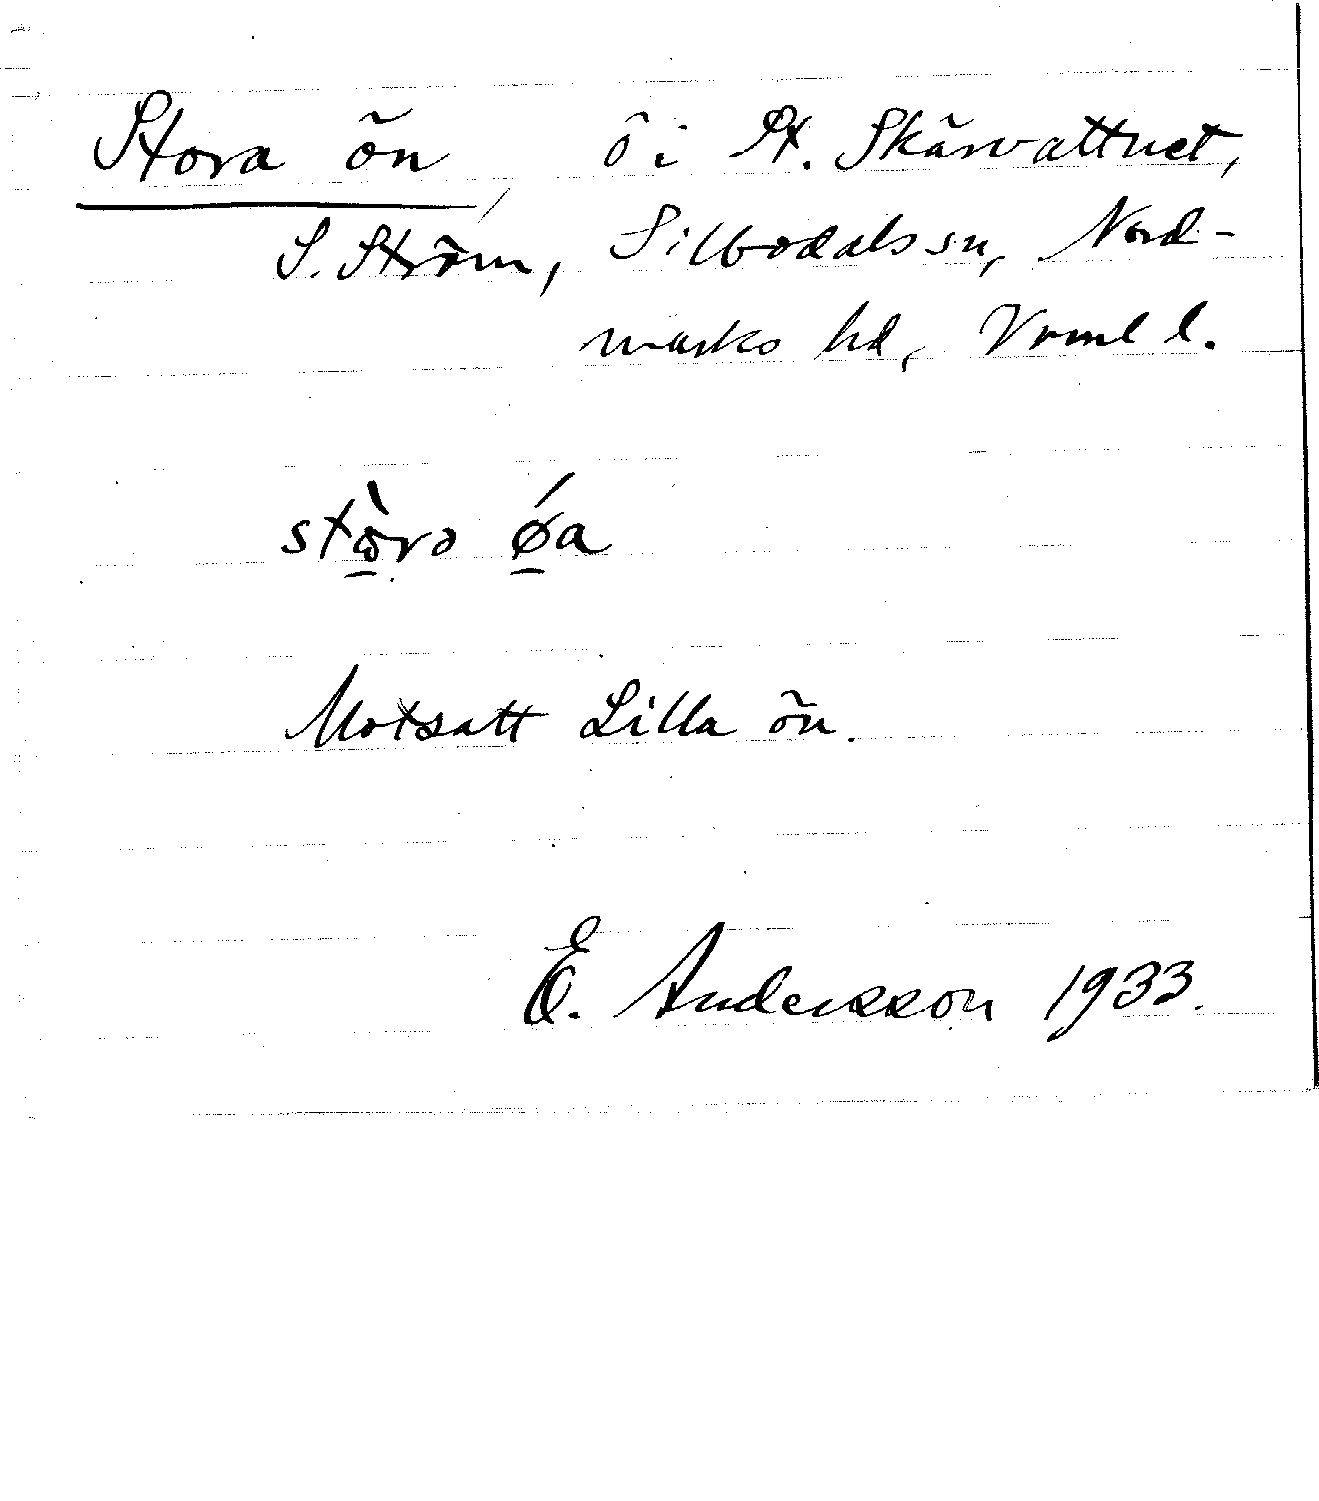 Stora ön, ö i St. Skärvattnet,
S. Ström, Silbodals sn, Nord-
marks hd, Vrml l.
stòro øa
Motsatt Lilla ön.
E. Andersson 1933.